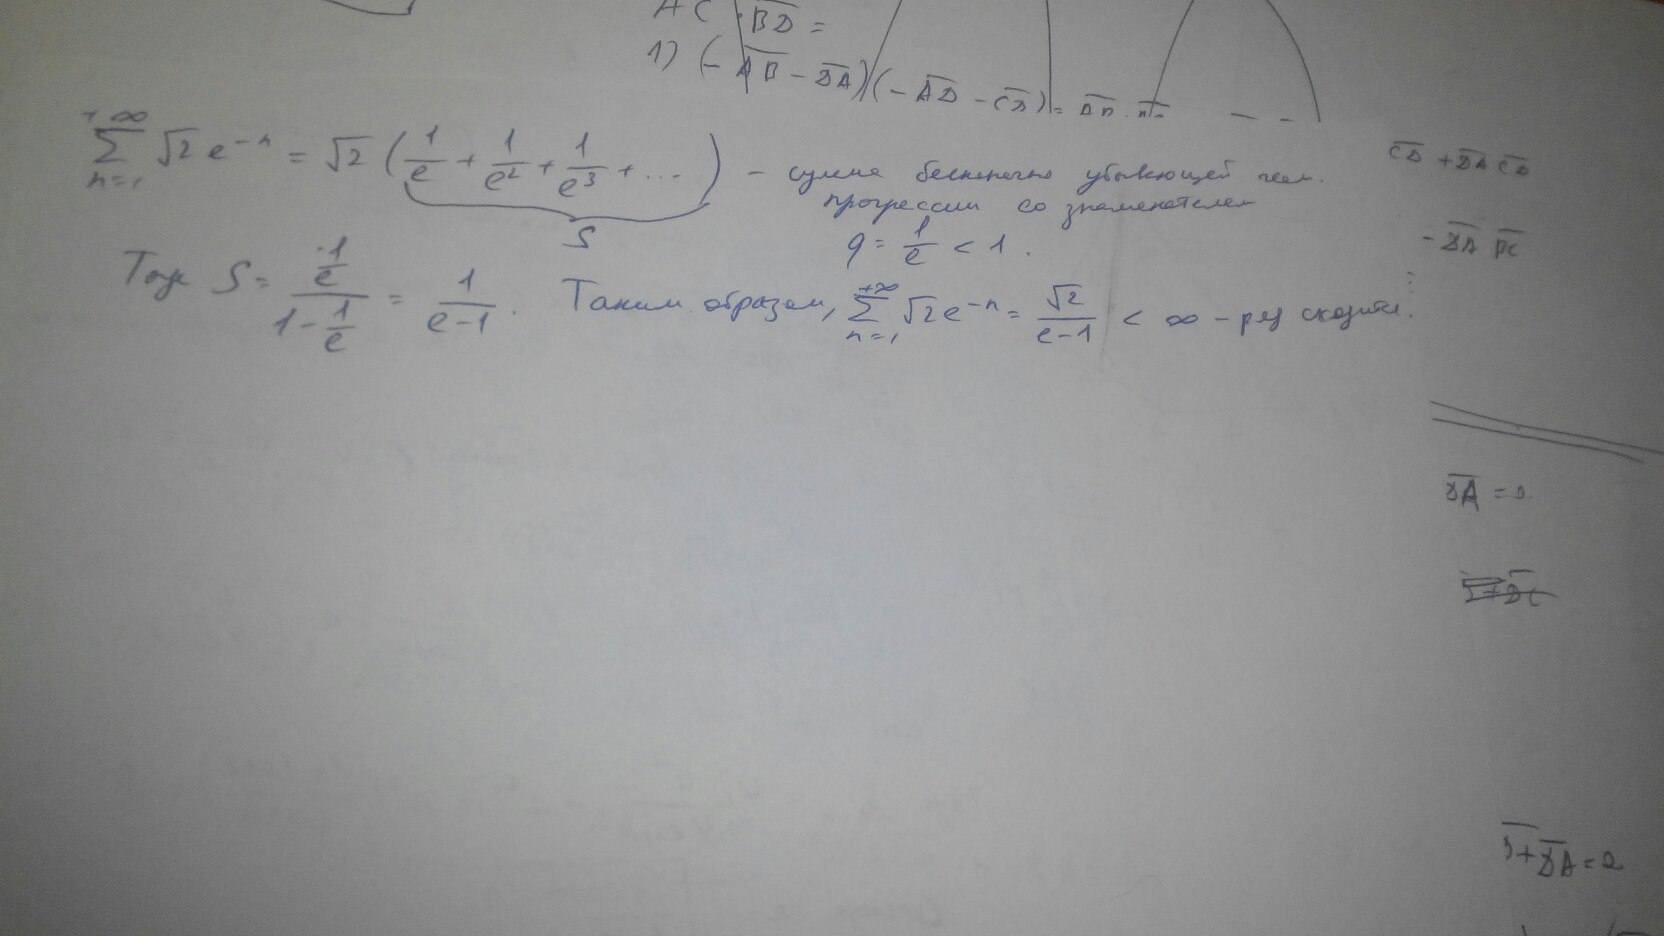 AC · BD =
1) (- AB - DA)(- AD - CD) =
+∞ ∑ n=1 √2 e^-n = √2 ( 1/e + 1/e² + 1/e³ + ... ) - сумма бесконечно убывающей геом.
прогрессии со знаменателем
S
q = 1/e < 1 .
CD + DA CD
- DA DC
Тогда S = (1/e)/(1 - 1/e) = 1/(e-1) . Таким образом, +∞ ∑ n=1 √2 e^-n = √2/(e-1) < ∞ - ряд сходится.
DA =
+ DA =